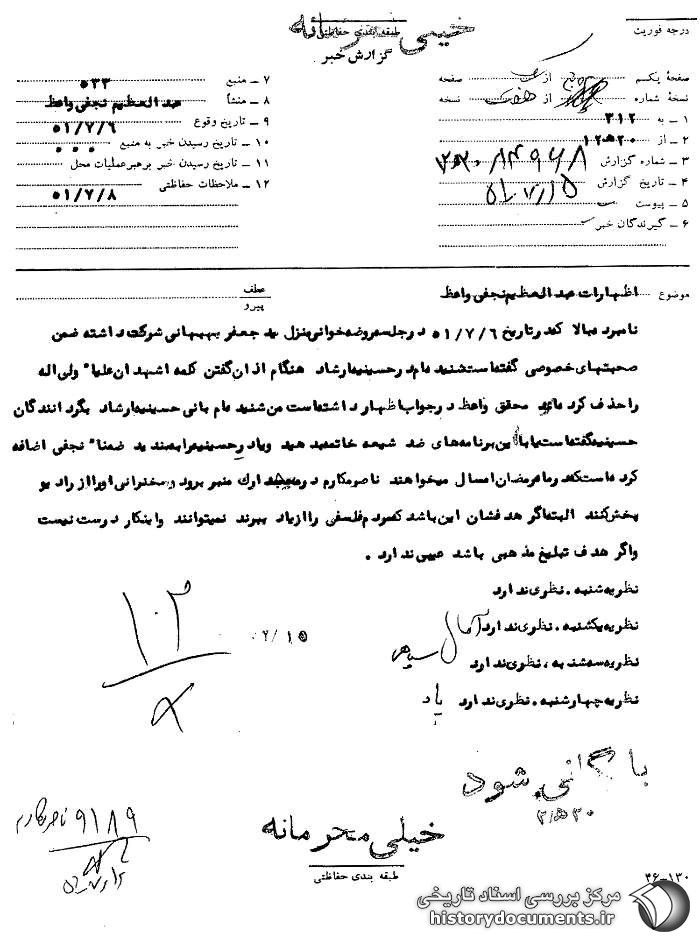 خیلی محرمانه
طبقه بندی حفاظتی
گزارش خبر
درجه فوریت
صفحهٔ یکم از صفحه
نسخهٔ شماره از هفت نسخه
۱ ــ به ۳۱۲
۲ ــ از ۱۲ ﻫ ۲۰
۳ ــ شماره گزارش
۴ ــ تاریخ گزارش
۵ ــ پیوست
۶ ــ گیرندگان خبر
۷ ــ منبع ۵۳۳
۸ ــ منشأ عبدالعظیم نجفی واعظ
۹ ــ تاریخ وقوع ۵۱/۷/۶
۱۰ ــ تاریخ رسیدن خبر به منبع
۱۱ ــ تاریخ رسیدن خبر برهبر عملیات محل
۱۲ ــ ملاحظات حفاظتی ۵۱/۷/۸
موضوع اظهارات عبدالعظیم نجفی واعظ
عطف
پیرو
نامبرده بالا که در تاریخ ۵۱/۷/۶ در جلسه روضه‌خوانی منزل سید جعفر بهبهانی شرکت داشته ضمن
صحبتهای خصوصی گفته است شنیده‌ام در حسینیه ارشاد هنگام اذان گفتن کلمه اشهد ان علیاً ولی اله
را حذف کرده‌اند محقق واعظ در جواب اظهار داشته است من شنیده‌ام بانی حسینیه ارشاد بگردانندگان
حسینیه گفته است یا با این برنامه‌های ضد شیعه خاتمه دهید و یا در حسینیه را ببندید ضمناً نجفی اضافه
کرده است که در ماه رمضان امسال میخواهند ناصر مکارم در مسجد ارك منبر برود و سخنرانی او را از رادیو
پخش کنند البته اگر هدفشان این باشد که مردم فلسفی را از یاد ببرند نمیتوانند و اینکار درست نیست
و اگر هدف تبلیغ مذهبی باشد عیبی ندارد .
نظریه شنبه . نظری ندارد
نظریه یکشنبه . نظری ندارد
نظریه سه‌شنبه ، نظری ندارد
نظریه چهارشنبه . نظری ندارد
۱۰۳
بایگانی شود
۹۱۸۹ ناصر مکارم
خیلی محرمانه
طبقه بندی حفاظتی
۴۶-۱۳۰
مرکز بررسی اسناد تاریخی
historydocuments.ir